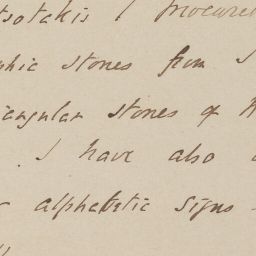 I procured
phic stones from
iangular stones of
. I have also
alphabetic signs -